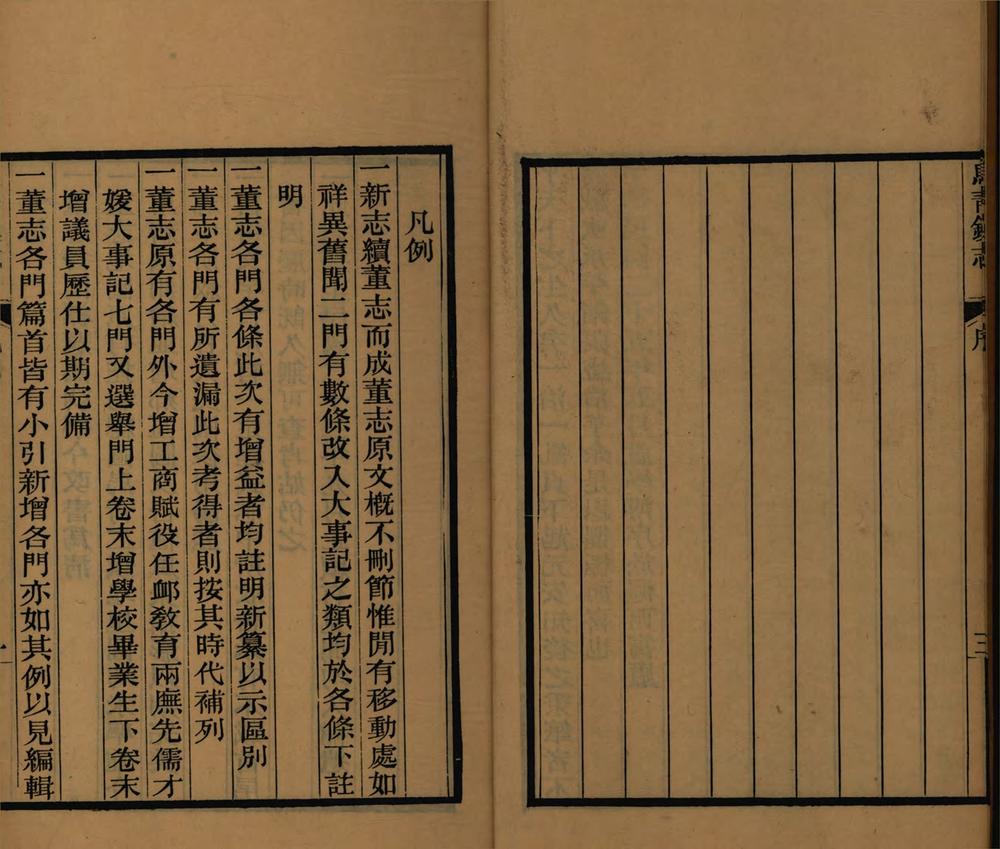 烏青鎮志
序
三
凡例
一新志續董志而成董志原文概不刪節惟閒有移動處如
祥異舊聞二門有數條改入大事記之類均於各條下註
明
一董志各門各條此次有增益者均註明新纂以示區別
一董志各門有所遺漏此次考得者則按其時代補列
一董志原有各門外今增工商賦役任卹教育兩廡先儒才
媛大事記七門又選舉門上卷末增學校畢業生下卷末
增議員歷仕以期完備
一董志各門篇首皆有小引新增各門亦如其例以見編輯